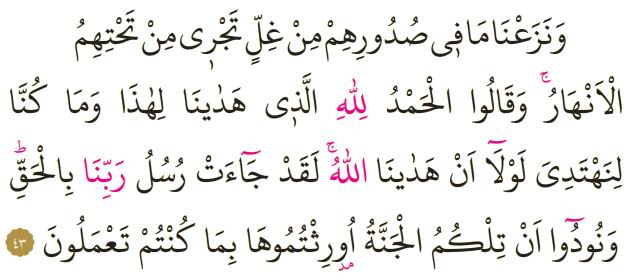 وَنَزَعْنَا مَا فٖى صُدُورِهِمْ مِنْ غِلٍّ تَجْرٖى مِنْ تَحْتِهِمُ
الْاَنْهَارُۚ وَقَالُوا الْحَمْدُ لِلّٰهِ الَّذٖى هَدٰينَا لِهٰذَا وَمَا كُنَّا
لِنَهْتَدِىَ لَوْلَٓا اَنْ هَدٰينَا اللّٰهُۚ لَقَدْ جَٓاءَتْ رُسُلُ رَبِّنَا بِالْحَقِّؕ
وَنُودُٓوا اَنْ تِلْكُمُ الْجَنَّةُ اُو۫رِثْتُمُوهَا بِمَا كُنْتُمْ تَعْمَلُونَ ٤٣